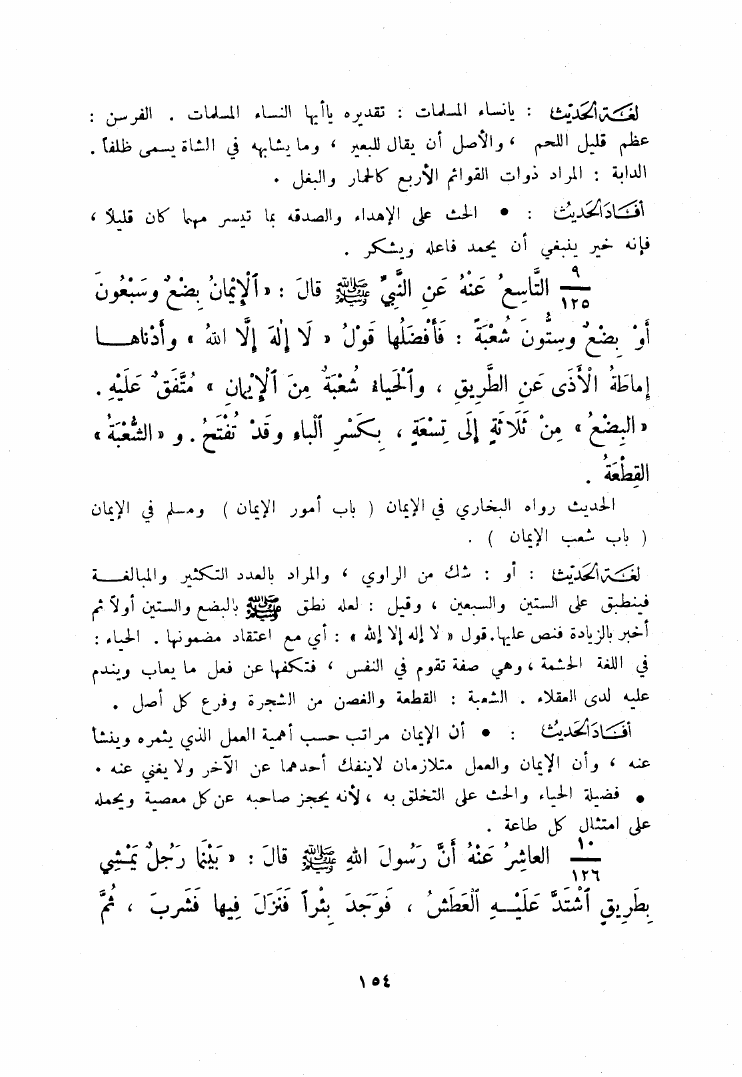 لغة الحديث : يانساء المسلمات : تقديره ياأيها النساء المسلمات . الفرسن :
عظم قليل اللحم ، والأصل أن يقال للبعير ، وما يشابهه في الشاة يسمى ظلفاً .
الدابة : المراد ذوات القوائم الأربع كالحمار والبغل .
أفاد الحديث : • الحث على الإهداء والصدقه بما تيسر مهما كان قليلاً ،
فإنه خير ينبغي أن يحمد فاعله ويشكر .
٩/١٢٥ التَّاسِعُ عَنْهُ عَنِ النَّبِيِّ ﷺ قالَ : « اَلْإِيْمَانُ بِضْعٌ وسَبْعُونَ
أَوْ بِضْعٌ وسِتُّونَ شُعْبَةً : فَأَفْضَلُها قَوْلُ « لَا إِلٰهَ إِلَّا اللهُ » وأَدْناهـا
إِماطَةُ الْأَذَى عَنِ الطَّرِيقِ ، والْحَياءُ شُعْبَةٌ مِنَ الْإِيْمانِ » مُتَّفَقٌ عَلَيْهِ .
« الْبِضْعُ » مِنْ ثَلَاثَةٍ إِلَى تِسْعَةٍ ، بِكَسْرِ الْباءِ وقَدْ تُفْتَحُ . و « الشُّعْبَةُ »
القِطْعَةُ .
الحديث رواه البخاري في الإيمان ( باب أمور الإيمان ) ومسلم في الإيمان
( باب شعب الإيمان ) .
لغة الحديث : أو : شك من الراوي ، والمراد بالعدد التكثير والمبالغـة
فينطبق على الستين والسبعين ، وقيل : لعله نطق ﷺ بالبضع والستين أولاً ثم
أخبر بالزيادة فنص عليها. قول « لا إله إلا الله » : أي مع اعتقاد مضمونها . الحياء :
في اللغة الحشمة ، وهي صفة تقوم في النفس ، فتكفها عن فعل ما يعاب ويندم
عليه لدى العقلاء . الشعبة : القطعة والغصن من الشجرة وفرع كل أصل .
أفاد الحديث : • أن الإيمان مراتب حسب أهمية العمل الذي يثمره وينشأ
عنه ، وأن الإيمان والعمل متلازمان لاينفك أحدهما عن الآخر ولا يغني عنه .
• فضيلة الحياء والحث على التخلق به ، لأنه يحجز صاحبه عن كل معصية ويحمله
على امتثال كل طاعة .
١٠/١٢٦ العاشِرُ عَنْهُ أَنَّ رَسُولَ اللهِ ﷺ قالَ : « بَيْنَما رَجُلٌ يَمْشِي
بِطَرِيقٍ اَشْتَدَّ عَلَيْـهِ الْعَطَشُ ، فَوَجَدَ بِئْراً فَنَزَلَ فِيها فَشَرِبَ ، ثُمَّ
١٥٤